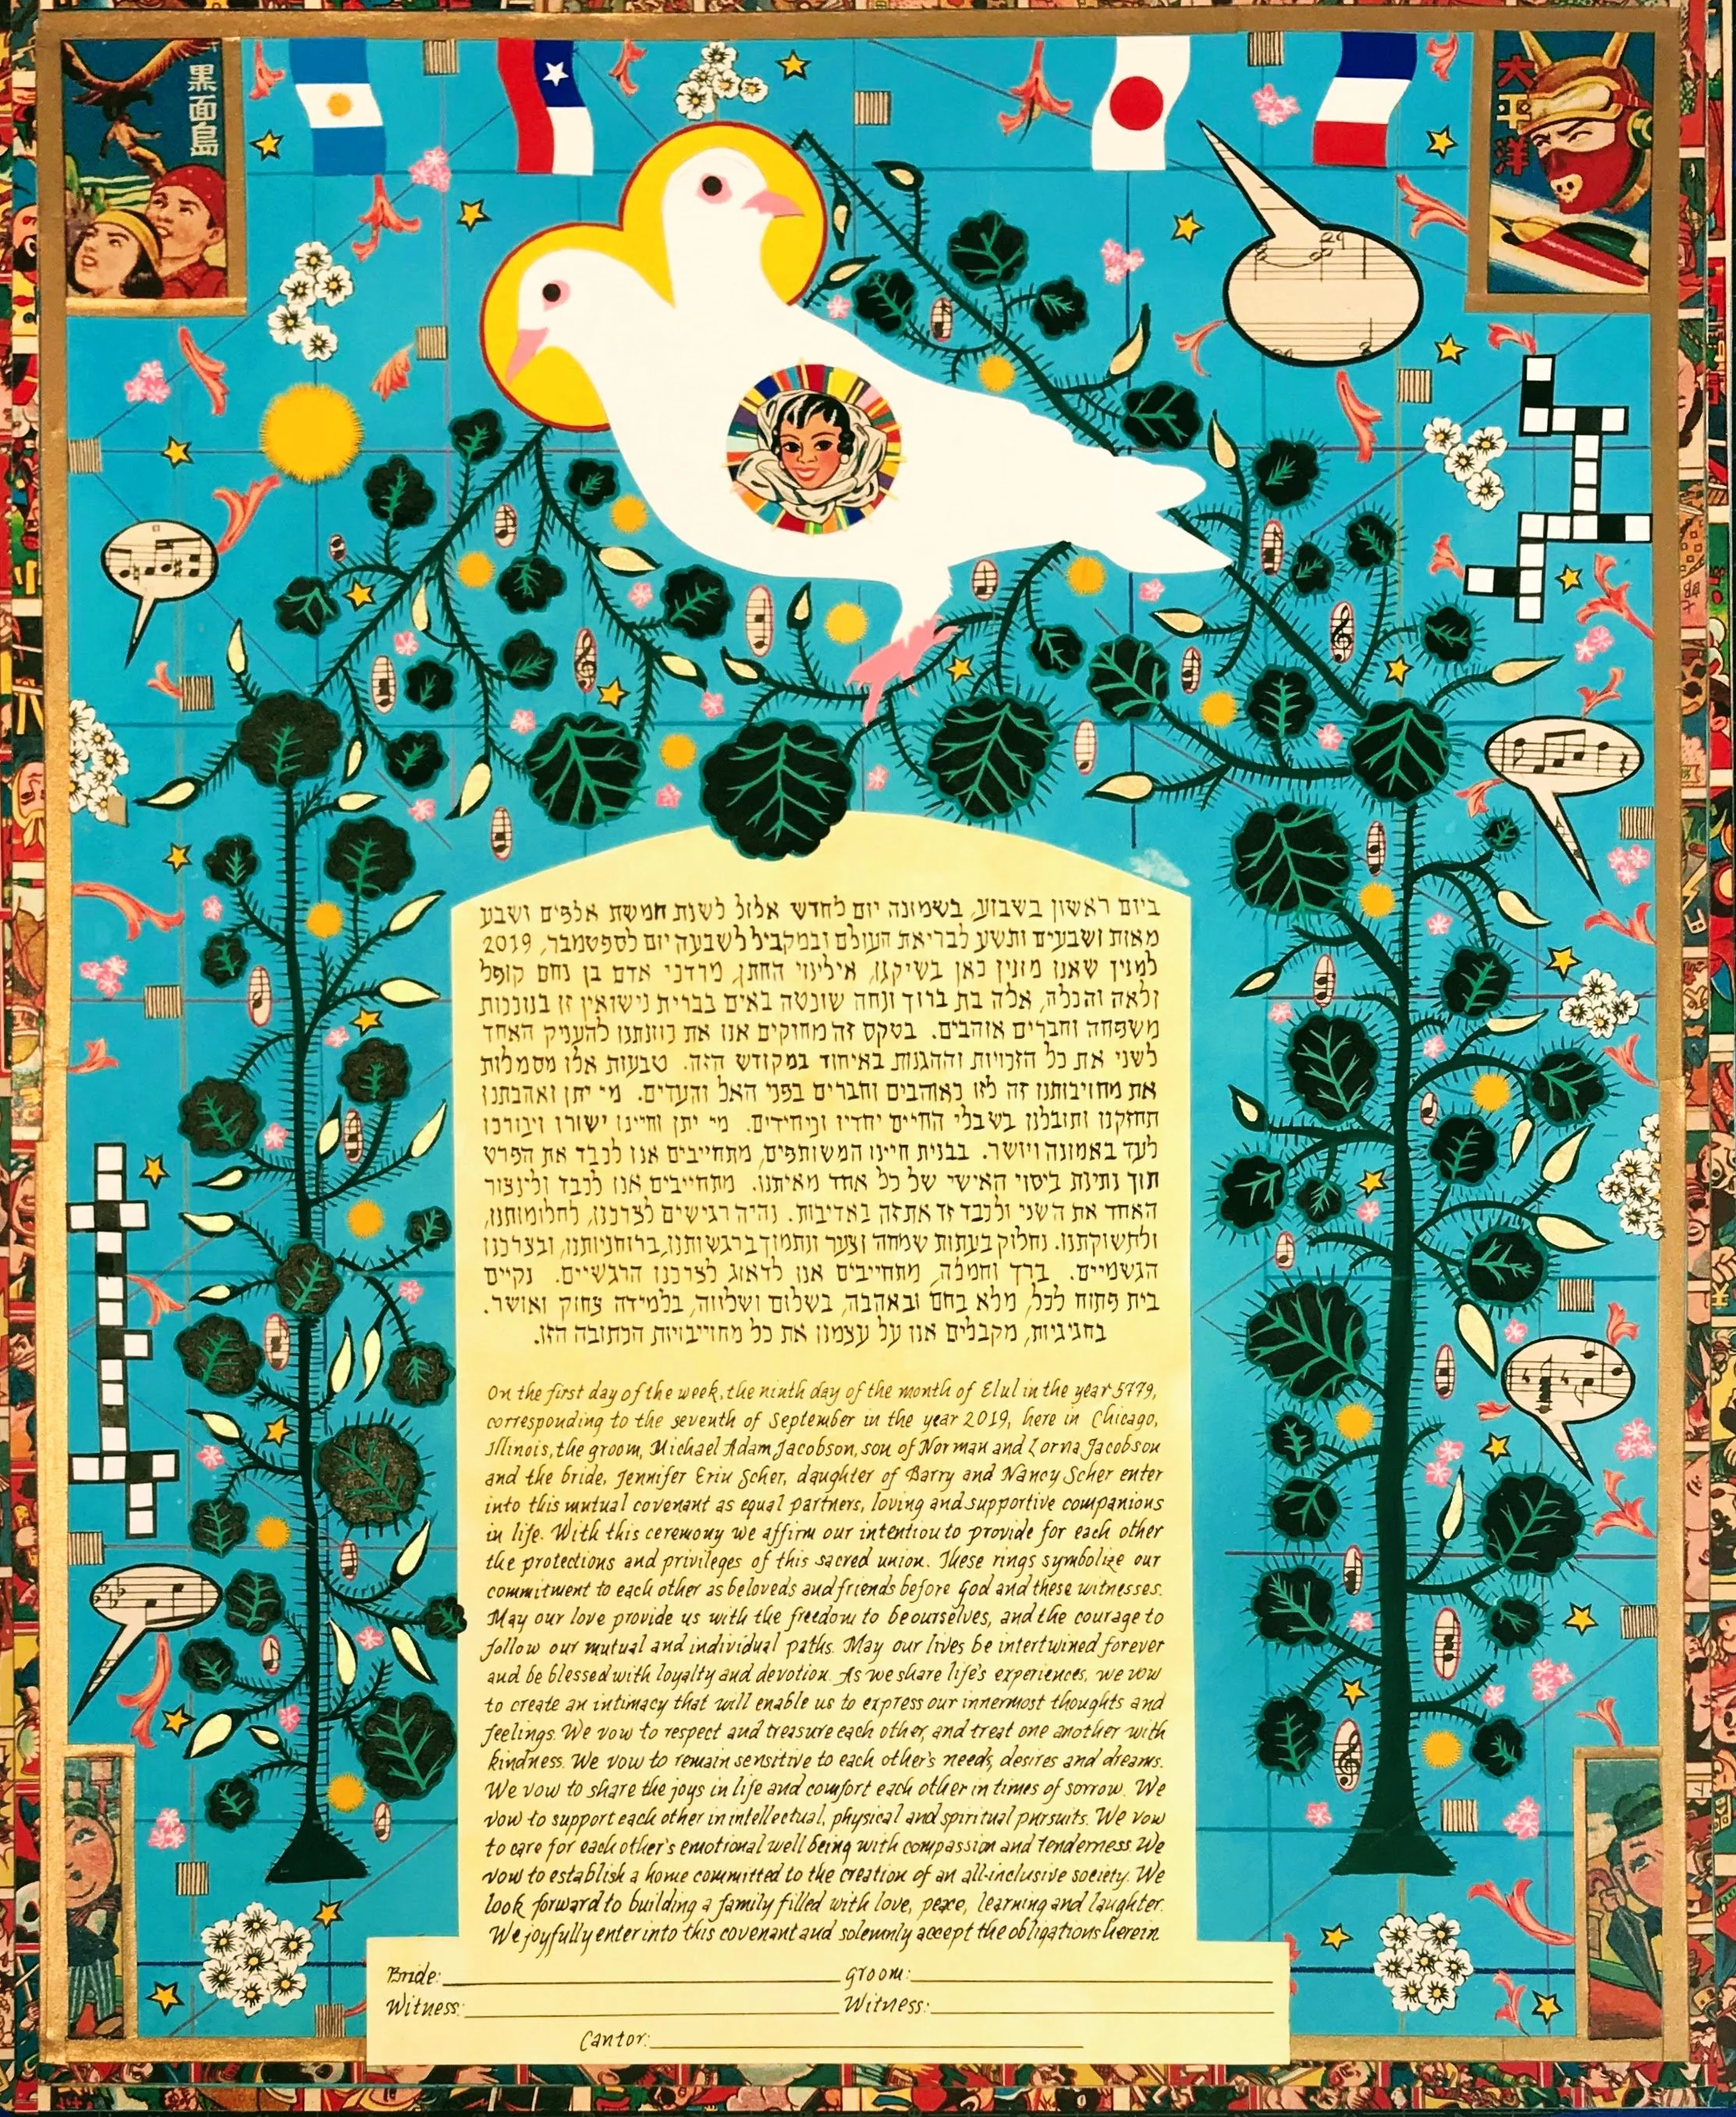 黒面島
大平洋
ביום ראשון בשבוע, בשמונה יום לחדש אלול לשנת חמשת אלפים ושבע
מאות ושבעים ותשע לבריאת העולם ובמקביל לשבעה יום לספטמבר, 2019
למנין שאנו מונין כאן בשיקגו, אילינוי החתן, מרדכי אדם בן נחם קופל
ולאה והכלה, אלה בת ברוך ונחה שונטה באים בברית נישואין זו בנוכחות
משפחה וחברים אוהבים. בטקס זה מחוקים אנו את כוונתנו להעניק האחד
לשני את כל הזכויות וההגנות באיחוד במקודש הזה. טבעות אלו מסמלות
את מחויבותנו זה לזו כאוהבים וחברים בפני האל והעדים. מי יתן ואהבתנו
תחזקנו ותובלנו בשבלי החיים יחדיו וכיחידים. מי יתן וחיינו ישורו ויבורכו
לעד באמונה ויושר. בבנית חיינו המשותפים, מתחייבים אנו לכבד את הפרט
תוך נתינת ביטוי האישי של כל אחד מאיתנו. מתחייבים אנו לכבד ולינצור
האחד את השני ולכבד זו את זה באדיבות. נהיה רגישים לצרכנו, לחלומותנו,
ולתשוקתנו. נחלוק בעתות שמחה וצער ונתמוך ברגשותנו, ברוחניותנו, ובצרכנו
הגשמיים. ברך וחמלה, מתחייבים אנו לדאוג לצרכנו הרגשיים. נקיים
בית פתוח לכל, מלא בחם ובאהבה, בשלום ושלווה, בלמידה צחוק ואושר.
בחגיגיות, מקבלים אנו על עצמנו את כל מחוייבויות הכתובה הזו.
On the first day of the week, the ninth day of the month of Elul in the year 5779,
corresponding to the seventh of September in the year 2019, here in Chicago,
Illinois, the groom, Michael Adam Jacobson, son of Norman and Lorna Jacobson
and the bride, Jennifer Erin Scher, daughter of Barry and Nancy Scher enter
into this mutual covenant as equal partners, loving and supportive companions
in life. With this ceremony we affirm our intention to provide for each other
the protections and privileges of this sacred union. These rings symbolize our
commitment to each other as beloveds and friends before God and these witnesses.
May our love provide us with the freedom to be ourselves, and the courage to
follow our mutual and individual paths. May our lives be intertwined forever
and be blessed with loyalty and devotion. As we share life's experiences, we vow
to create an intimacy that will enable us to express our innermost thoughts and
feelings. We vow to respect and treasure each other, and treat one another with
kindness. We vow to remain sensitive to each other's needs, desires and dreams.
We vow to share the joys in life and comfort each other in times of sorrow. We
vow to support each other in intellectual, physical and spiritual pursuits. We vow
to care for each other's emotional well being with compassion and tenderness. We
vow to establish a home committed to the creation of an all-inclusive society. We
look forward to building a family filled with love, peace, learning and laughter.
We joyfully enter into this covenant and solemnly accept the obligations herein.
Bride: Groom:
Witness: Witness:
Cantor: